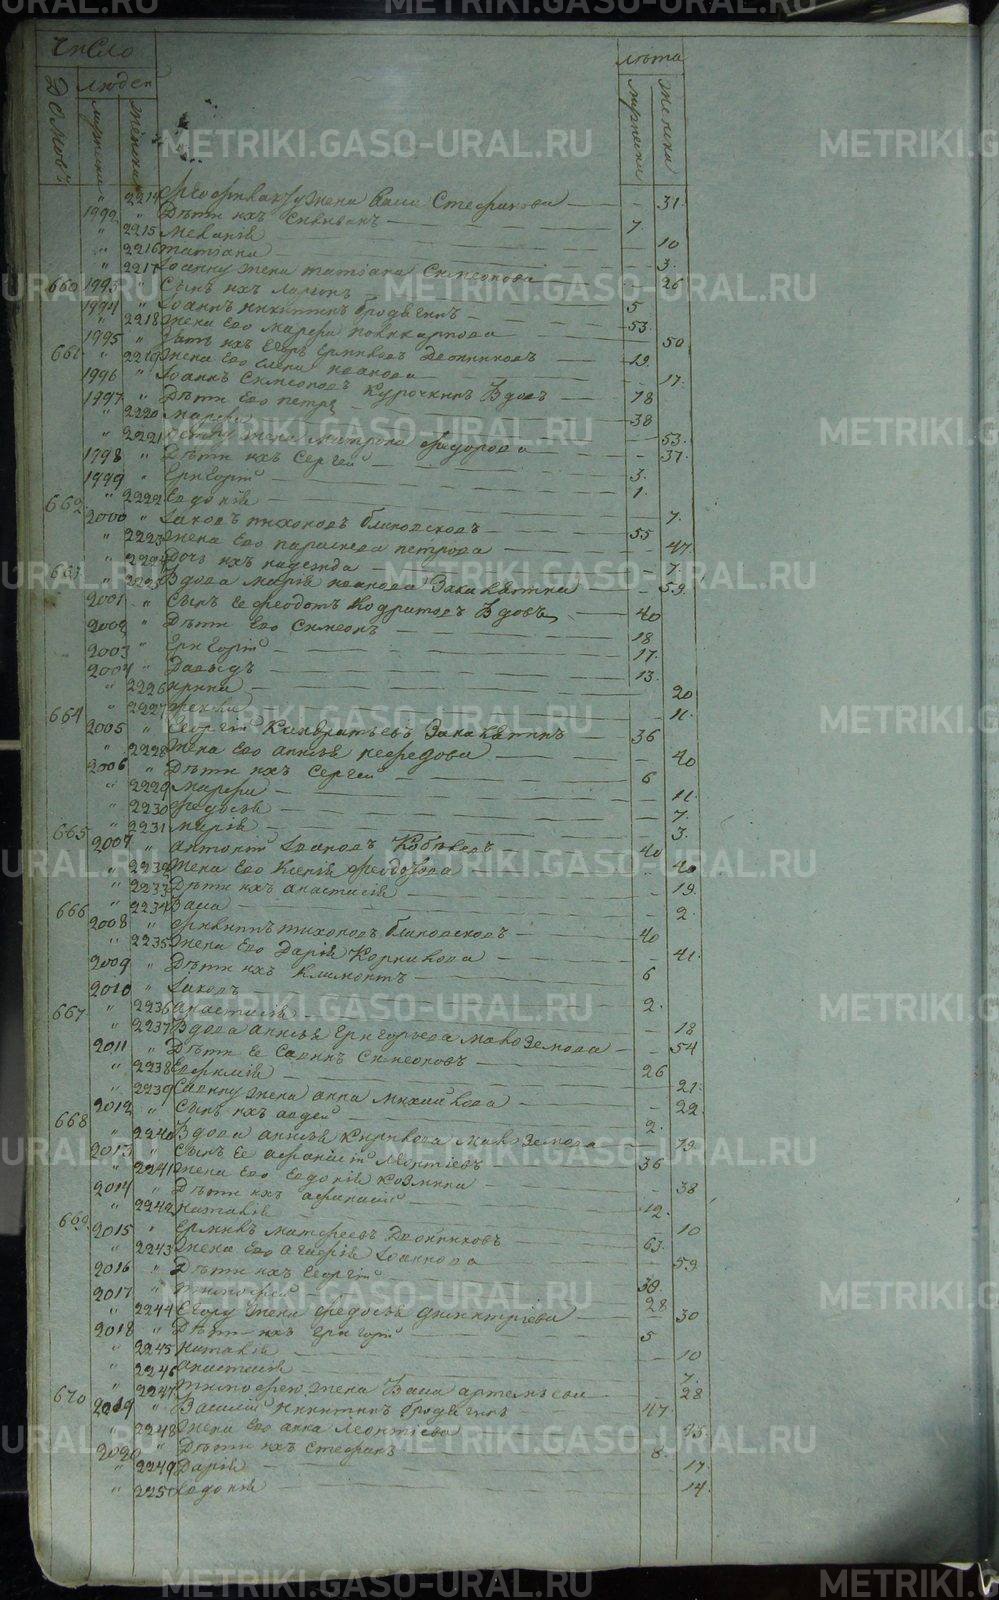 Число
Домовъ
людей
мужеска
женска
лѣта
мужеска
женска
" 2214 жена Васа Стефанова — 31.
1992 " Дѣти ихъ Силиванъ — 7
" 2215 Меланія — 10
" 2216 Татіана — 3.
" 2217 Іоанну жена Татіана Симеонова — 26
1993 " Сынъ ихъ Ларіонъ — 5
660 1994 " Іоаннъ Никитинъ Бродягинъ — 53.
" 2218 Жена Его Марфа Поликарпова — 50
1995 " Зять ихъ Егоръ Ермиловъ Двойниковъ — 19.
" 2219 Жена Его Елена Иванова — 17.
661 1996 " Іоаннъ Симеоновъ Курочкинъ Вдовъ — 78
1997 " Дѣти Его Петръ — 38
" 2220 Марфа — 53.
" 2221 Петру жена Матрона Федорова — 37.
1998 " Дѣти ихъ Сергей — 3.
1999 " Григорій — 1.
" 2222 Евдокія — 7.
662 2000 " Іаковъ Тихоновъ Блиновсковъ — 55
" 2223 Жена Его Параскева Петрова — 47
" 2224 Дочь ихъ Надежда — 7.
663 " 2225 Вдова Марія Иванова — 59.
2001 " Сынъ Ее Феодотъ Кодратовъ Вдовъ — 40
2002 " Дѣти Его Симеонъ — 18
2003 " Григорій — 17.
2004 " Давыдъ — 13.
" 2226 Ирина — 20
" 2227 Фекла — 11.
664 2005 " Георгій Кандратьевъ — 36
" 2228 Жена Его Анисья Нефедова — 40
2006 " Дѣти ихъ Сергей — 6
" 2229 Марфа — 11.
" 2230 Федосья — 7.
" 2231 Марія — 3.
665 2007 " Антоній Івановъ Кобелевъ — 40
" 2232 Жена Его Ксенія Феодорова — 40
" 2233 Дѣти ихъ Анастасія — 19.
" 2234 Васа — 2.
666 2008 " Тихоновъ Блиновсковъ — 40
" 2235 Жена Его Дарія Корнилова — 41.
2009 " Дѣти ихъ Климонтъ — 6
2010 " Іаковъ — 2.
" 2236 Анастасія — 18
667 " 2237 Вдова Анисья Григорьева Малоземова — 54
2011 " Дѣти Ее Савинъ Симеоновъ — 26
" 2238 Евфимія — 21.
" 2239 Савину жена Анна Михайлова — 22.
2012 " Сынъ ихъ Авдей — 2.
668 " 2240 Вдова Анисья Кирилова Малоземова — 79
2013 " Сынъ Ее Афанасій Леонтіевъ — 36
" 2241 Жена Его Евдокія Козмина — 38
2014 " Дѣти ихъ Афанасій — 12.
" 2242 Наталія — 10
669 2015 " Ермилъ Матфеевъ Двойниковъ — 63.
" 2243 Жена Его Агафія Іоаннова — 59.
2016 " Дѣти ихъ Георгій — 30.
2017 " Тимофей — 28
" 2244 Егору жена Федосья Димитріева — 30
2018 " Дѣти ихъ Григорій — 5
" 2245 Наталія — 10
" 2246 Анастасія — 7.
" 2247 Тимофею жена Васа Артемьева — 28
670 2019 " Василій Никитинъ Бродягинъ — 47
" 2248 Жена Его Анна Леонтіева — 45.
2020 " Дѣти ихъ Стефанъ — 8.
" 2249 Дарія — 17
" 2250 Евдокія — 14.
METRIKI.GASO-URAL.RU